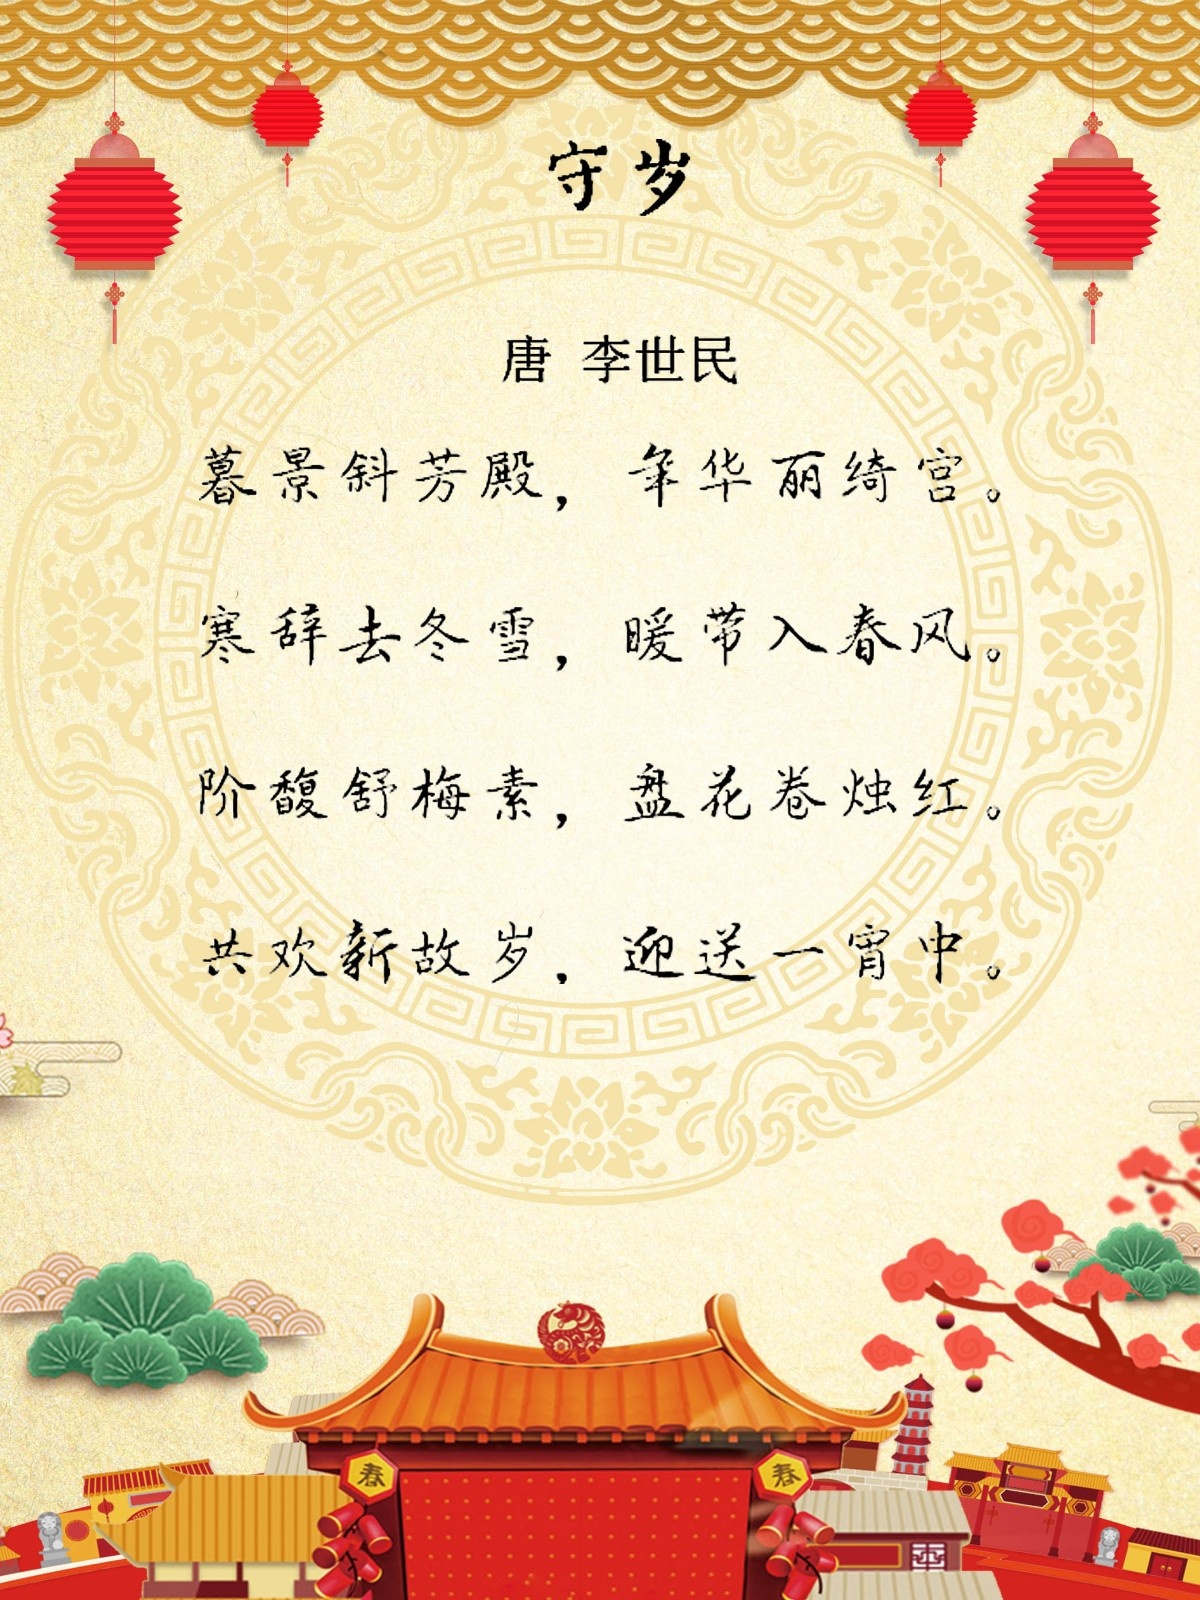 守岁
唐 李世民
暮景斜芳殿，年华丽绮宫。
寒辞去冬雪，暖带入春风。
阶馥舒梅素，盘花卷烛红。
共欢新故岁，迎送一宵中。
春
春